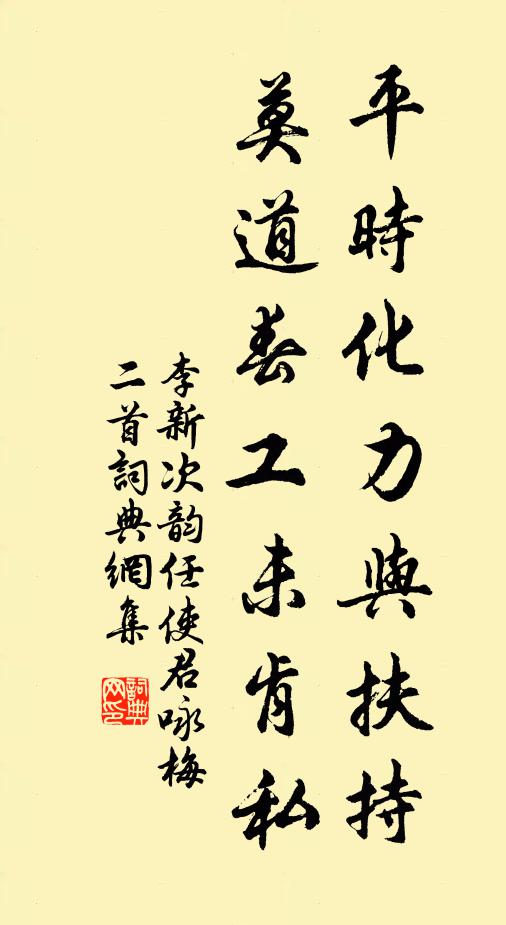 平時化力與扶持
莫道春工未肯私
李新次韵任使君咏梅
二首詞典網集
詞典网印